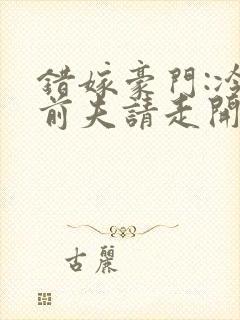 錯嫁豪門:冷
前夫請走開
古麗